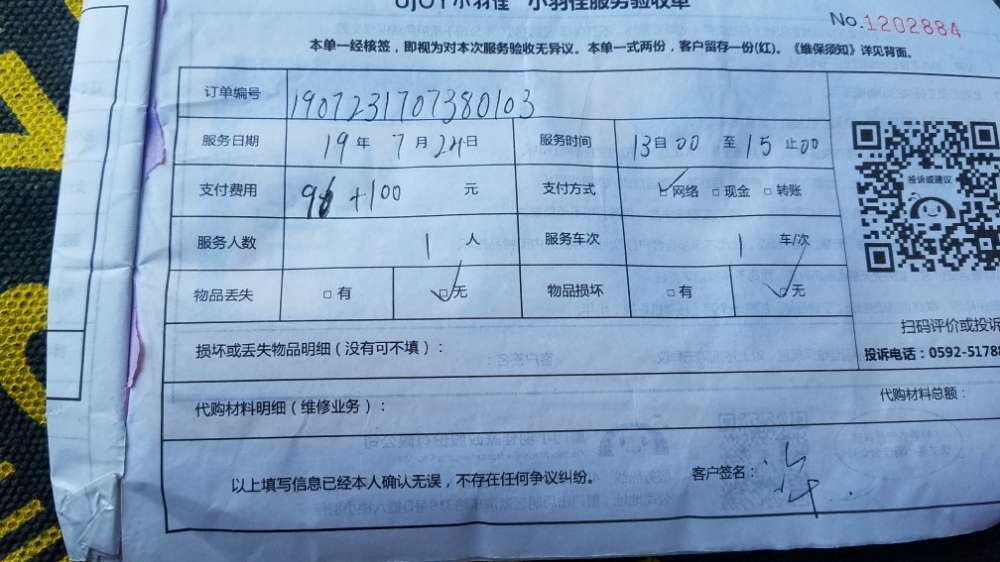 UJOY小羽佳 小羽佳服务验收单
No.1202884
本单一经核签，即视为对本次服务验收无异议。本单一式两份，客户留存一份(红)。《维保须知》详见背面。
订单编号 1907231707380103
服务日期 19年 7月24日 服务时间 13自00 至 15止00
支付费用 98+100 元 支付方式 网络 现金 转账
投诉或建议
服务人数 1 人 服务车次 1 车/次
物品丢失 有 无 物品损坏 有 无
扫码评价或投诉
损坏或丢失物品明细（没有可不填）：
投诉电话：0592-51788
代购材料明细（维修业务）： 代购材料总额：
以上填写信息已经本人确认无误，不存在任何争议纠纷。 客户签名：